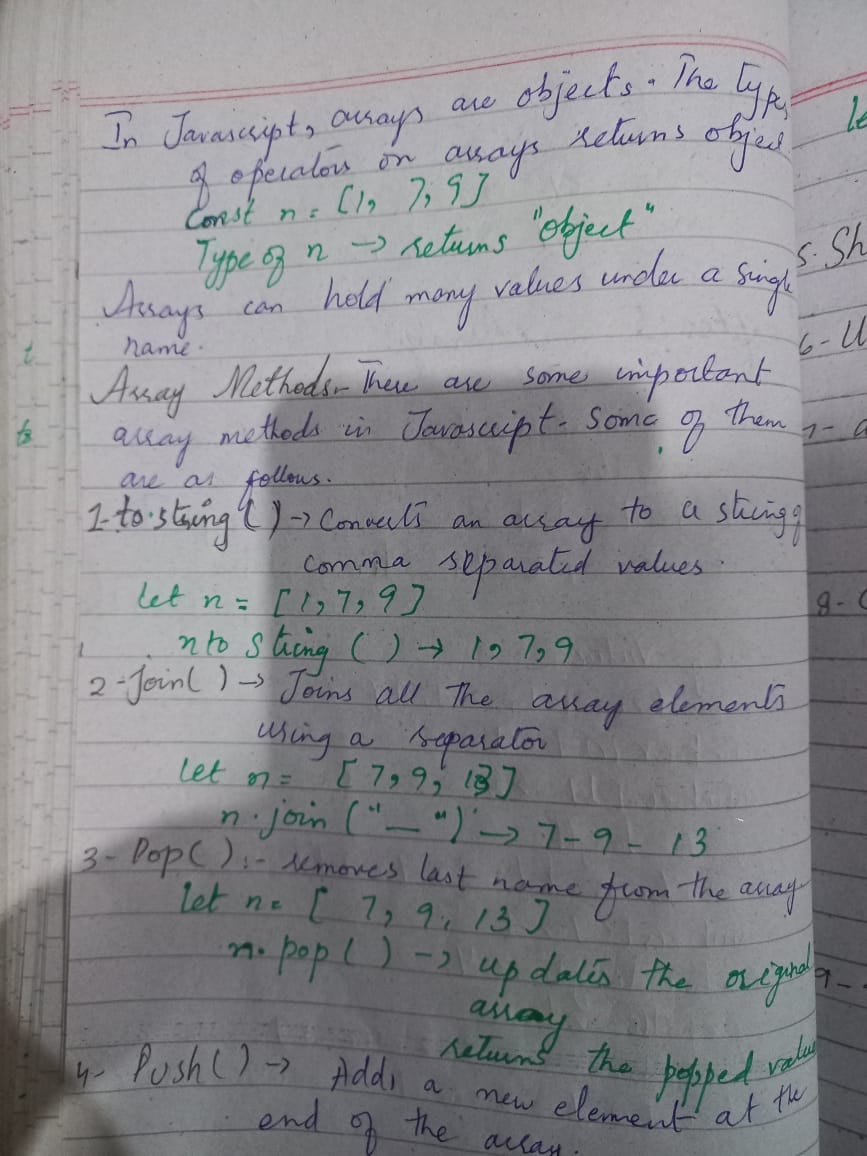 In Javascript, arrays are objects. The type
of operators on arrays returns object
Const n = [1, 7, 9]
Type of n -> returns "object"
Arrays can hold many values under a single
name.
Array Methods - There are some important
array methods in Javascript. Some of them
are as follows.
1- to.string () -> Converts an array to a string of
comma separated values.
let n = [1, 7, 9]
n to string () -> 1, 7, 9
2 - Join( ) -> Joins all the array elements
using a separator
let n = [7, 9, 13]
n.join ("_") -> 7-9-13
3 - Pop( ) :- removes last name from the array
let n = [7, 9, 13]
n.pop ( ) -> updates the original
array
returns the popped value
4- Push() -> Adds a new element at the
end of the array.
le
5. Sh
6 - U
7 -
8 -
9 -